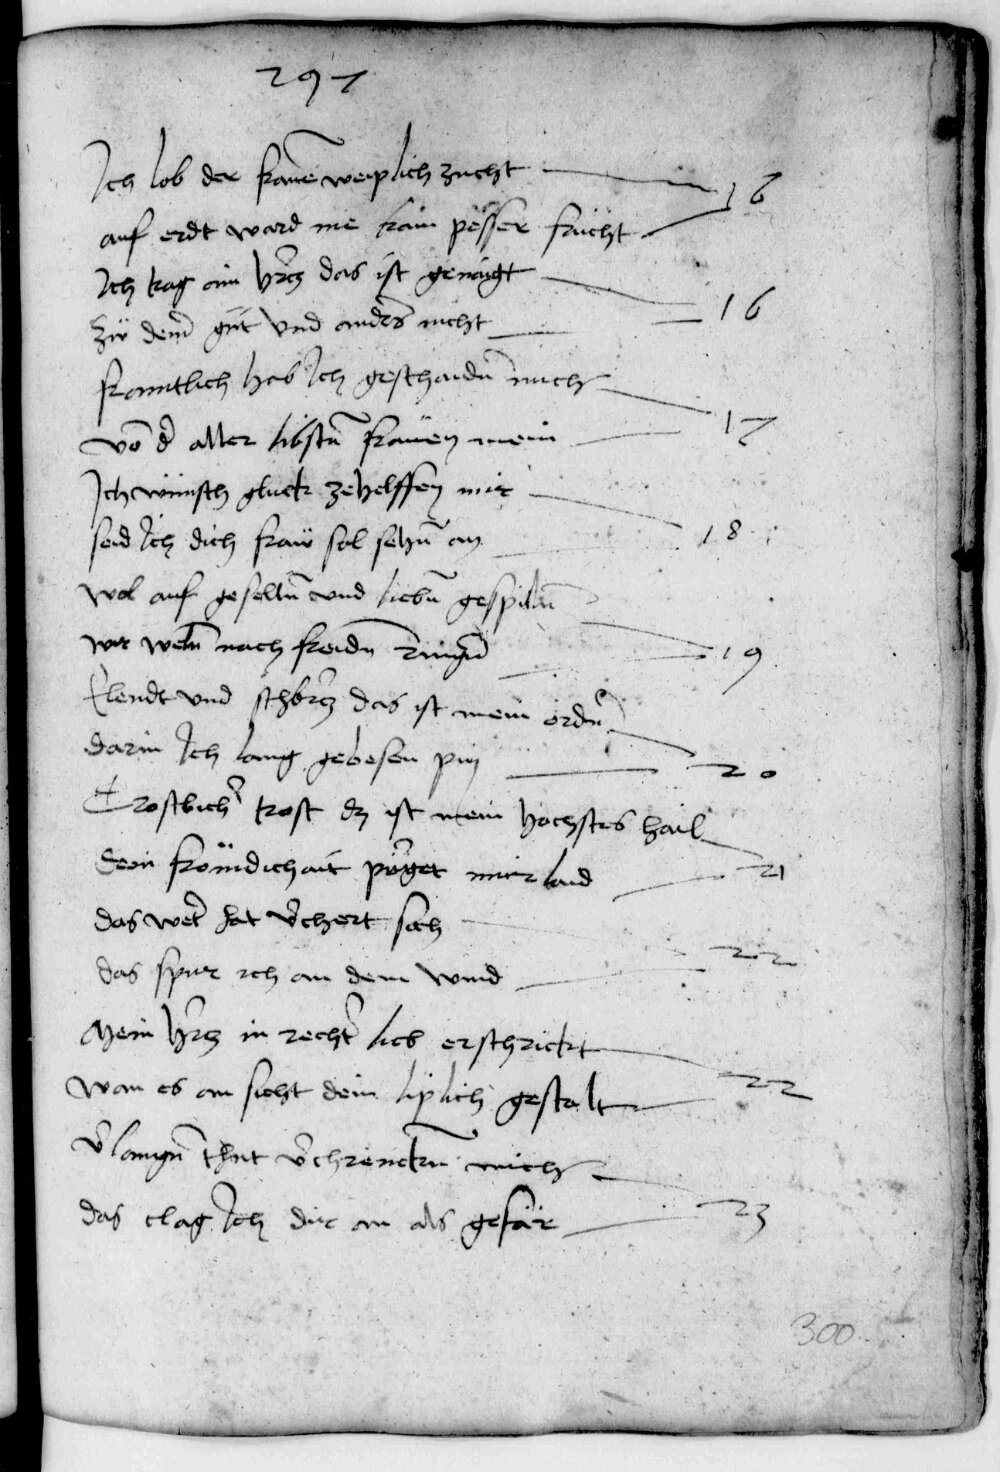 297
Ich lob der fraue weiplich zucht 16
auf erdt ward nie kain pesser frücht
Ich trag ain hercz das ist genaigt 16
zü dem güt und anders nicht
frainttlich hab Ich geschaidn mich 17
von der aller libstn frauen mein
Ich wünsch gluck ze helffen mir 18
seid Ich dich fraw sol sehn an
wol auf geselln und liebn gespiln
wir welln nach freidn ringn 19
Elendt und schbercz das ist mein ordn
darin Ich lang gebesen pin 20
Trostlicher trost dz ist mein hochstes hail
dein fröindichait pürget mir laid 21
das weter hat verchert sich
das spur ich an dem wind 22
Mein hercz in rechter lieb erschrickt
wan es an sicht dein liplich gestalt 22
verlangn thut verchrencken mich
das clag Ich dir an als gefär 23
300